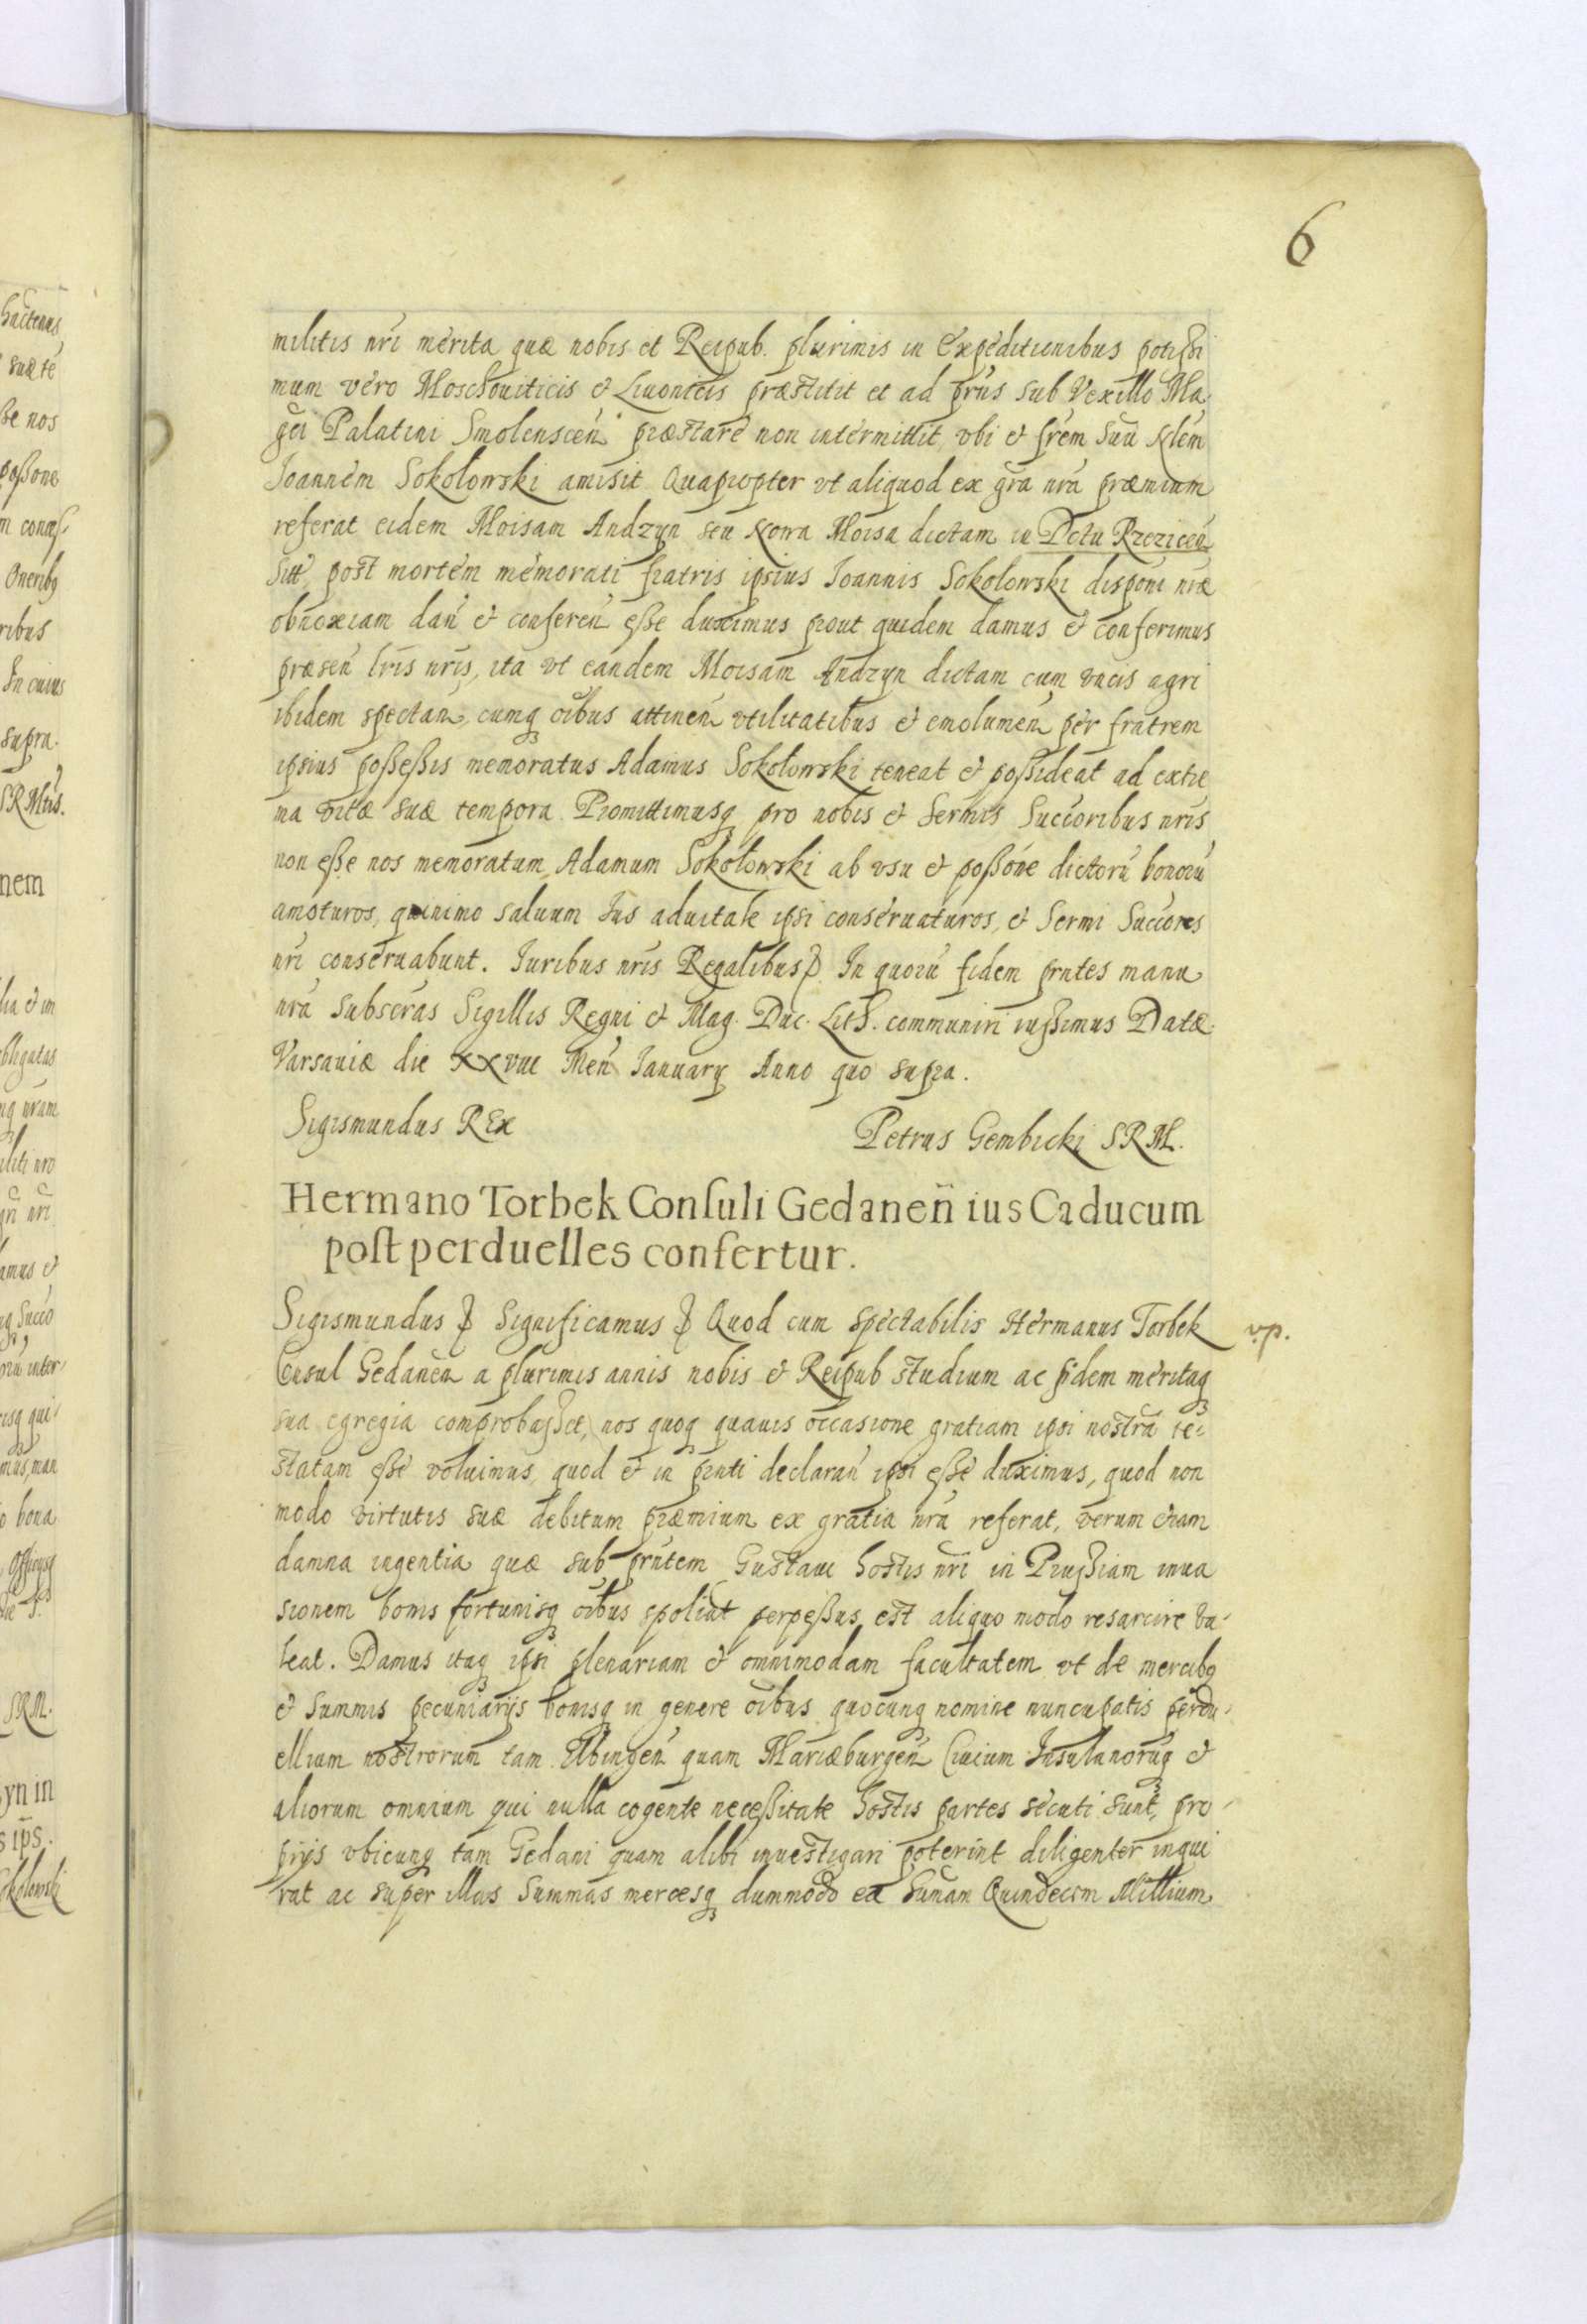 6
militis nr̃i merita quæ nobis et Reipub. plurimis in Expeditionibus potißi
mum vero Moschouiticis & Liuonicis præstitit et ad prñs sub Vexillo Ma
gci Palatini Smolenscen̄ præstare non intermittit, vbi & fr̃em suũ Nlem
Joannem Sokołowski amisit Quapropter vt aliquod ex gr̃a nr̃a præmium
referat eidem Moisam Andzyn seu Nowa Moisa dictam in Dctu Rzezicen̄
sitt, post mortem memorati fratris ipsius Joannis Sokołowski disponi nr̃æ
obnoxiam dan̄ & conferen̄ eße duximus prout quidem damus & conferimus
præsen̄ lr̃is nr̃is, ita vt eandem Moisam Andzyn dictam cum vncis agri
ibidem spectan̄ cumq oĩbus attinen̄ vtilitatibus & emolumen̄ per fratrem
ipsius poßeßis memoratus Adamus Sokołowski teneat & poßideat ad extre
ma vitæ suæ tempora Promittimusq pro nobis & Sermis Succoribus nr̃is
non eße nos memoratum Adamum Sokołowski ab vsu & poßone dictorũ bonorũ
amoturos, quinimo saluum Ius aduitale ipsi conseruaturos, & Sermi Succores
nr̃i conseruabunt. Iuribus nr̃is Regalibus In quorũ fidem prñtes manu
nr̃a subscr̃as Sigillis Regni & Mag. Duc. Lith. communiri iußimus Datæ
Varsauiæ die xxvııı Men̄ January Anno quo supra.
Sigismundus REx Petrus Gembicki SRM.
Hermano Torbek Consuli Gedanen̄ ius Caducum
post perduelles confertur.
Sigismundus Significamus Quod cum spectabilis Hermanus Torbek
v.p.
Consul Gedanen̄ a plurimis annis nobis & Reipub studium ac fidem meritaq
sua egregia comprobaßet, nos quoq quauis occasione gratiam ipsi nostrã te-
statam eße voluimus, quod & in prñti declaran̄ ipsi eße duximus, quod non
modo virtutis suæ debitum præmium ex gratia nr̃a referat, verum etiam
damna ingentia quæ sub prñtem Gustaui hostis nr̃i in Prußiam inua
sionem bonis fortunisq oĩbus spoliat perpeßus est aliquo modo resarcire va-
leat. Damus itaq ipsi plenariam & omnimodam facultatem vt de mercibq
& summis pecuniarijs bonisq in genere oĩbus quocunq nomine nuncupatis perdu-
ellium nostrorum tam Elbingen̄ quam Mariæburgen̄ Ciuium Insulanorũq &
aliorum omnium qui nulla cogente neceßitate hostis partes secuti sunt, pro-
prijs vbicunq tam Gedani quam alibi inuestigari poterint diligenter inqui
rat ac super illas summas mercesq dummodo ea Sum̃am Quindecim Millium